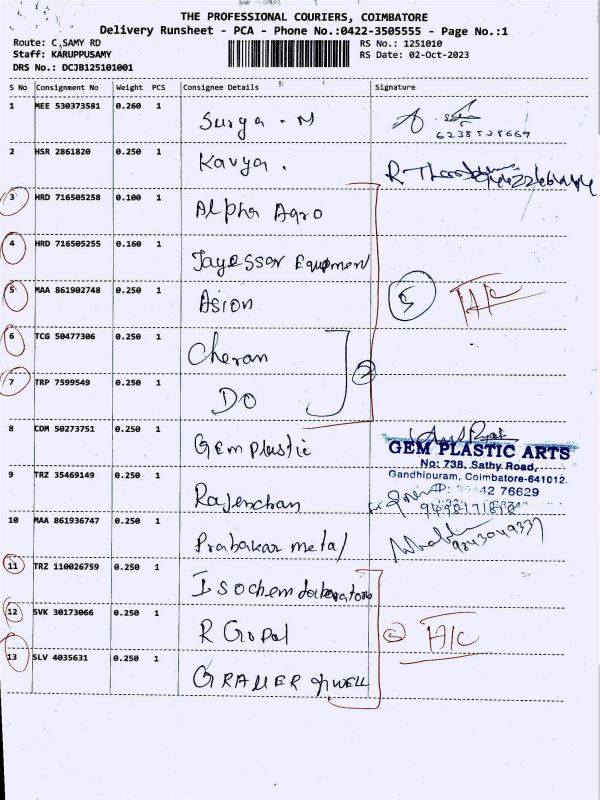 THE PROFESSIONAL COURIERS, COIMBATORE
Delivery Runsheet - PCA - Phone No.:0422-3505555 - Page No.:1
Route: C.SAMY RD RS No.: 1251010
Staff: KARUPPUSAMY RS Date: 02-Oct-2023
DRS No.: DCJB125101001
S No Consignment No Weight PCS Consignee Details Signature
1 MEE 530373581 0.260 1 Surya . M
2 HSR 2861820 0.250 1 Kavya .
3 HRD 716505258 0.100 1 Alpha Agro
4 HRD 716505255 0.160 1 Equipment
5 MAA 861902748 0.250 1 Asion
5 A/c
6 TCG 50477306 0.250 1 Cheran
7 TRP 7599549 0.250 1 DO
8 CDM 50273751 0.250 1 Gem plastic
GEM PLASTIC ARTS
No: 738, Sathy Road,
Gandhipuram, Coimbatore-641012.
42 76629
9 TRZ 35469149 0.250 1
10 MAA 861936747 0.250 1 Prabakar metal
9843049337
11 TRZ 110026759 0.250 1 Isochem laboratory
12 SVK 30173066 0.250 1 R Gopal
A/c
13 SLV 4035631 0.250 1